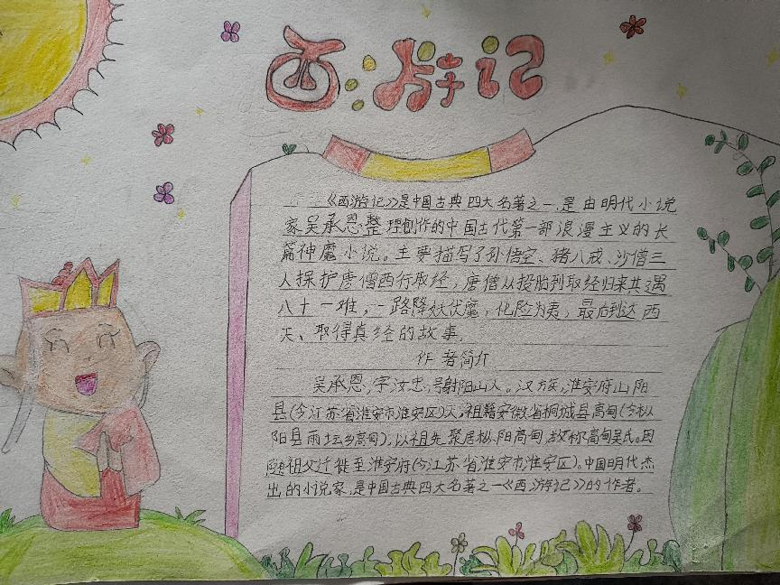 西游记
《西游记》是中国古典四大名著之一,是由明代小说
家吴承恩整理创作的中国古代第一部浪漫主义的长
篇神魔小说。主要描写了孙悟空、猪八戒、沙僧三
人保护唐僧西行取经,唐僧从投胎到取经归来共遇
八十一难,一路降妖伏魔,化险为夷,最后到达西
天、取得真经的故事.
作者简介
吴承恩,字汝忠,号射阳山人。汉族,淮安府山阳
县(今江苏省淮安市淮安区)人,祖籍安徽省桐城县高甸(今枞
阳县雨坛乡高甸),以祖先聚居枞阳高甸,故称高甸吴氏。因
随祖父迁徙至淮安府(今江苏省淮安市淮安区)。中国明代杰
出的小说家,是中国古典四大名著之一《西游记》的作者。